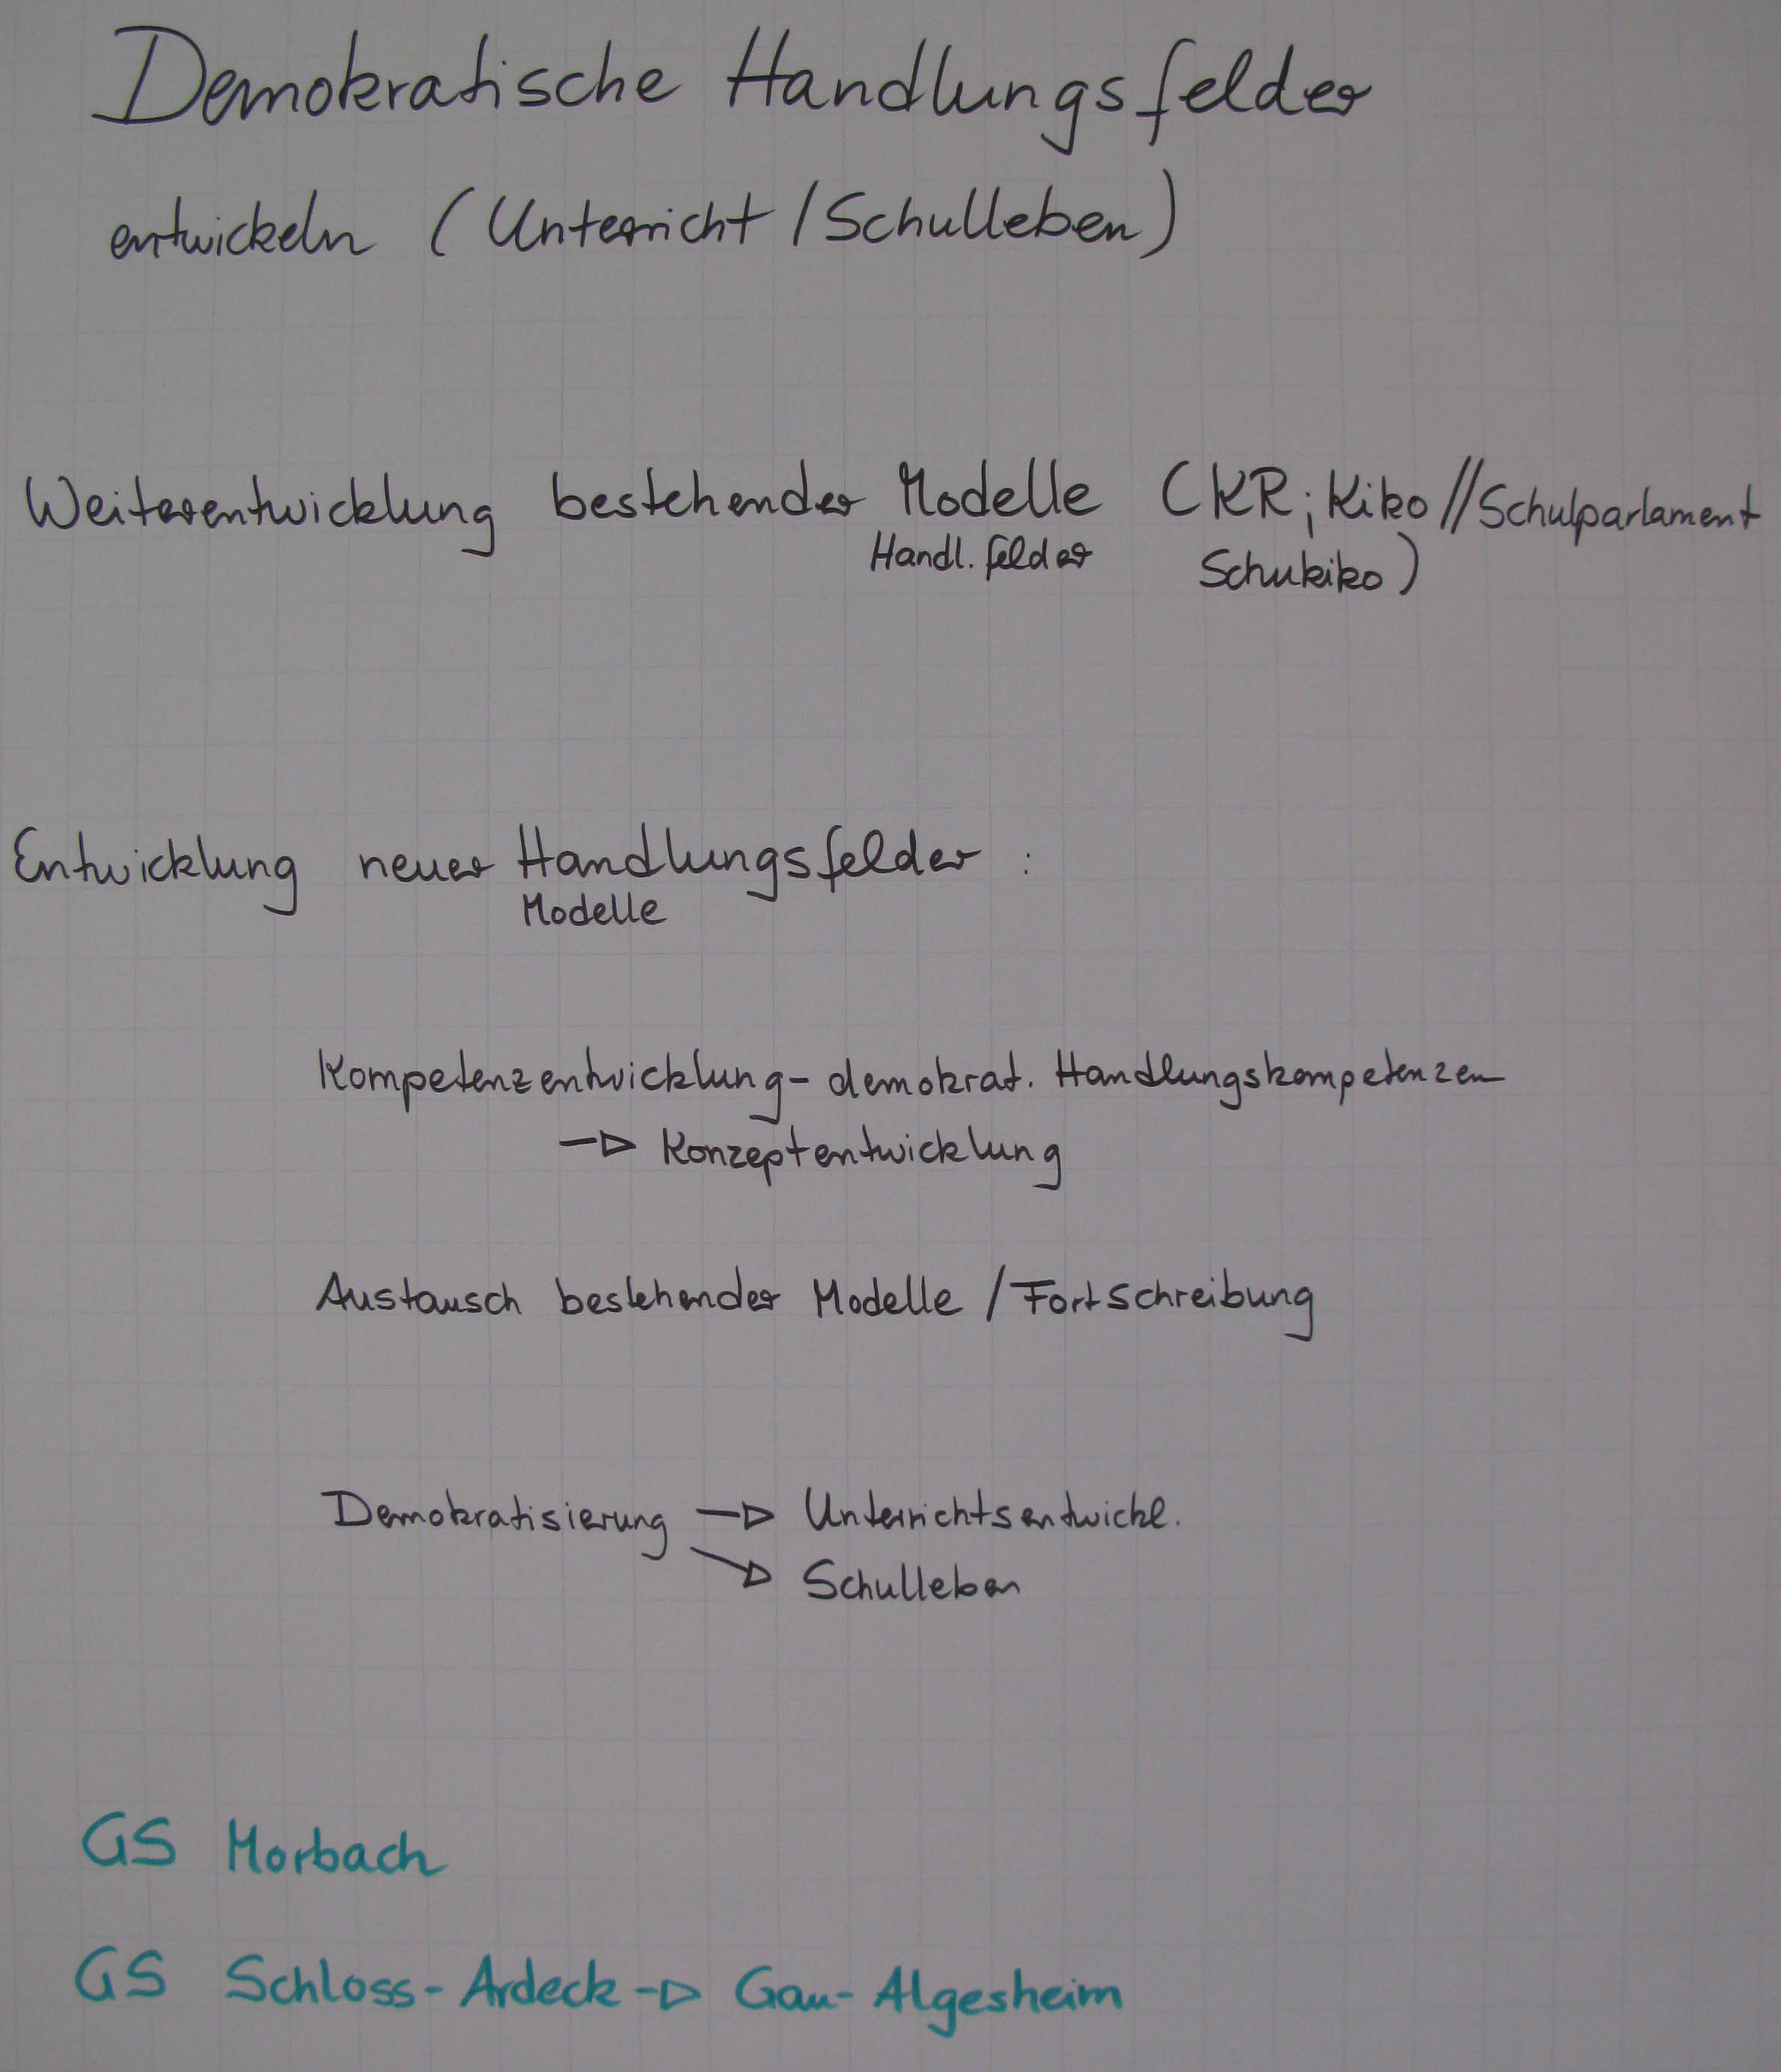 Demokratische Handlungsfelder
entwickeln (Unterricht / Schulleben)
Weiterentwicklung bestehender Modelle (KR; Kiko // Schulparlament
Handl.felder Schukiko)
Entwicklung neuer Handlungsfelder :
Modelle
Kompetenzentwicklung - demokrat. Handlungskompetenzen
→ Konzeptentwicklung
Austausch bestehender Modelle / Fortschreibung
Demokratisierung → Unterrichtsentwickl.
→ Schulleben
GS Morbach
GS Schloss-Ardeck → Gau-Algesheim